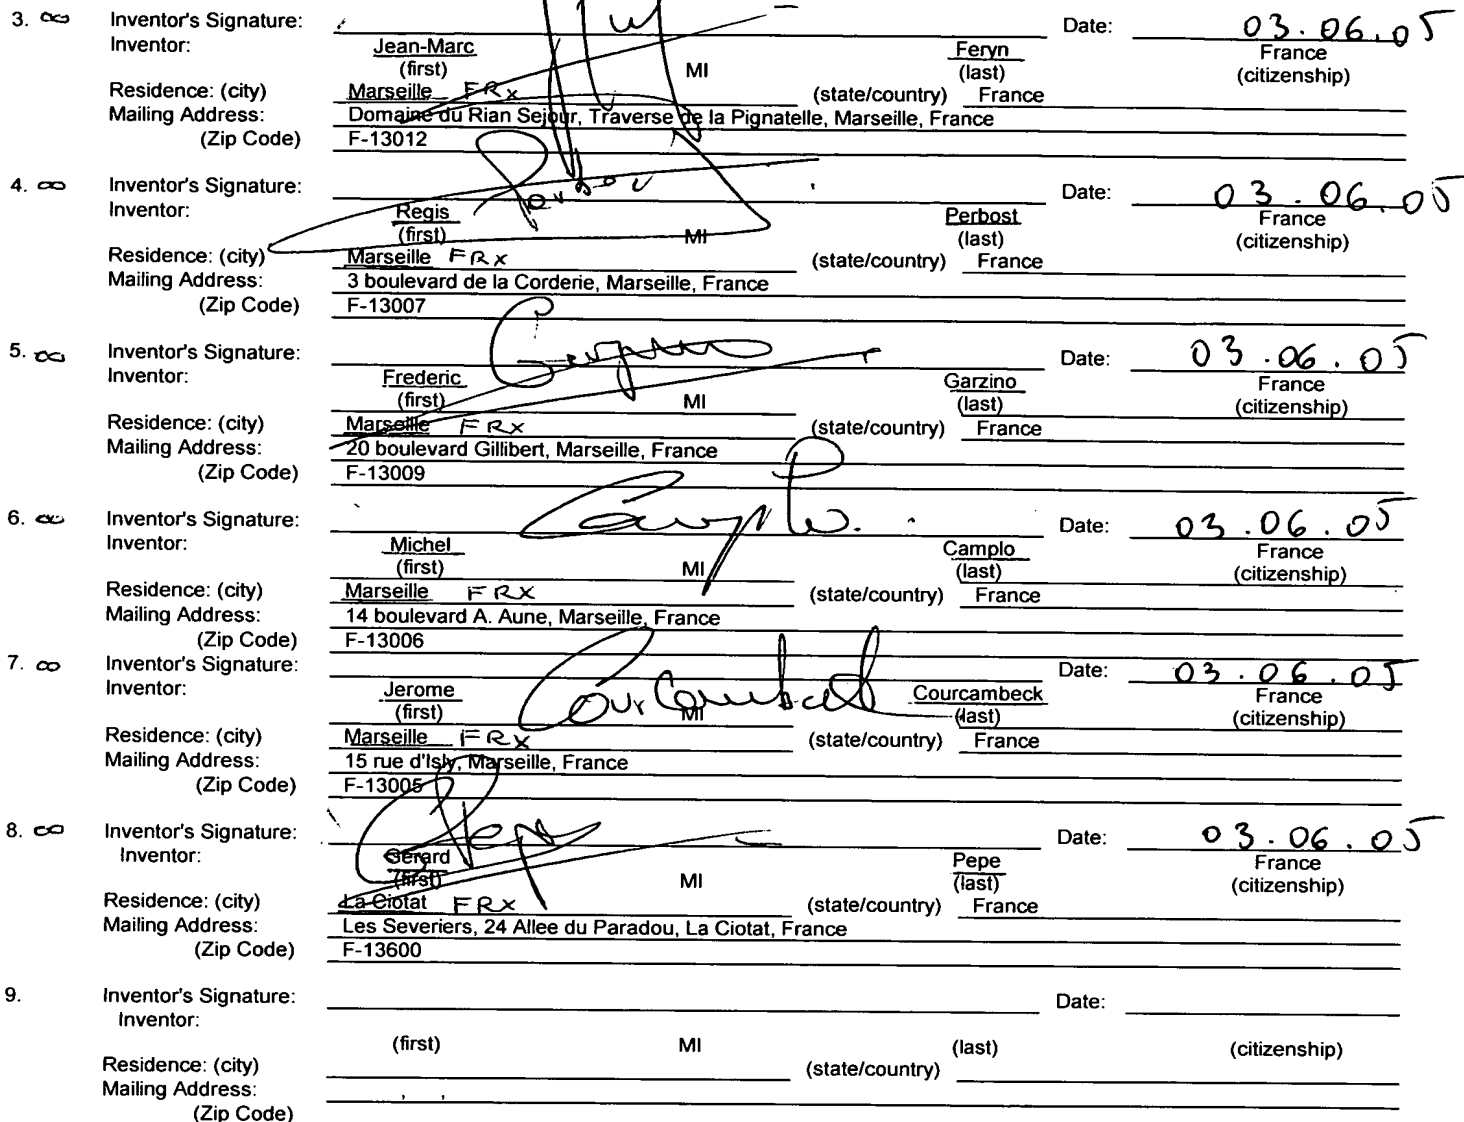 3. Inventor's Signature: Date: 03.06.05
Inventor: Jean-Marc Feryn France
(first) MI (last) (citizenship)
Residence: (city) Marseille FRX (state/country) France
Mailing Address: Domaine du Rian Sejour, Traverse de la Pignatelle, Marseille, France
(Zip Code) F-13012
4. Inventor's Signature: Date: 03.06.05
Inventor: Regis Perbost France
(first) MI (last) (citizenship)
Residence: (city) Marseille FRX (state/country) France
Mailing Address: 3 boulevard de la Corderie, Marseille, France
(Zip Code) F-13007
5. Inventor's Signature: Date: 03.06.05
Inventor: Frederic Garzino France
(first) MI (last) (citizenship)
Residence: (city) Marseille FRX (state/country) France
Mailing Address: 20 boulevard Gillibert, Marseille, France
(Zip Code) F-13009
6. Inventor's Signature: Date: 03.06.05
Inventor: Michel Camplo France
(first) MI (last) (citizenship)
Residence: (city) Marseille FRX (state/country) France
Mailing Address: 14 boulevard A. Aune, Marseille, France
(Zip Code) F-13006
7. Inventor's Signature: Courcambeck Date: 03.06.05
Inventor: Jerome Courcambeck France
(first) MI (last) (citizenship)
Residence: (city) Marseille FRX (state/country) France
Mailing Address: 15 rue d'Isly, Marseille, France
(Zip Code) F-13005
8. Inventor's Signature: Date: 03.06.05
Inventor: Gérard Pepe France
(first) MI (last) (citizenship)
Residence: (city) La Ciotat FRX (state/country) France
Mailing Address: Les Severiers, 24 Allee du Paradou, La Ciotat, France
(Zip Code) F-13600
9. Inventor's Signature: Date:
Inventor:
(first) MI (last) (citizenship)
Residence: (city) (state/country)
Mailing Address: , ,
(Zip Code)